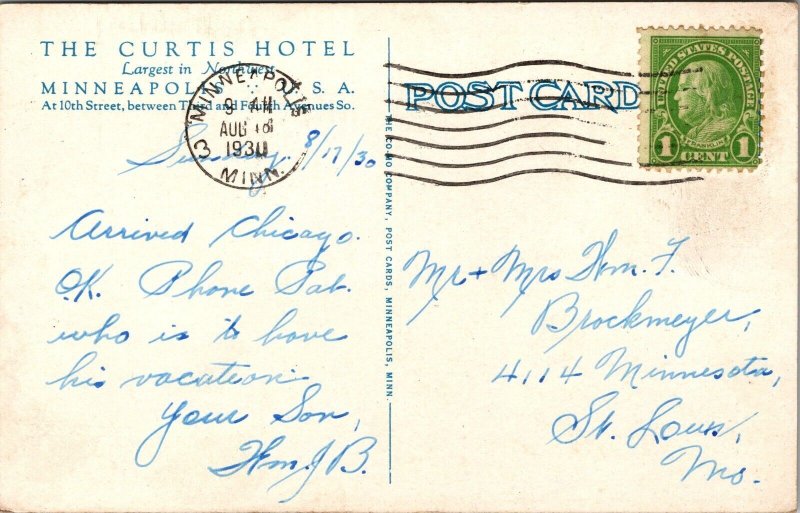 THE CURTIS HOTEL
Largest in Northwest
MINNEAPOLIS U. S. A.
At 10th Street, between Third and Fourth Avenues So.
MINNEAPOLIS
9 AM
AUG 18
1930
MINN.
3
POST CARD
UNITED STATES POSTAGE
FRANKLIN
1 CENT 1
THE CO-MO COMPANY, POST CARDS, MINNEAPOLIS, MINN.
Sunday. 8/17/30
Arrived Chicago.
O.K. Phone Pat.
who is to have
his vacation
Your Son,
Wm J B.
Mr + Mrs Wm. F.
Brockmeyer,
4114 Minnesota,
St. Louis,
Mo.